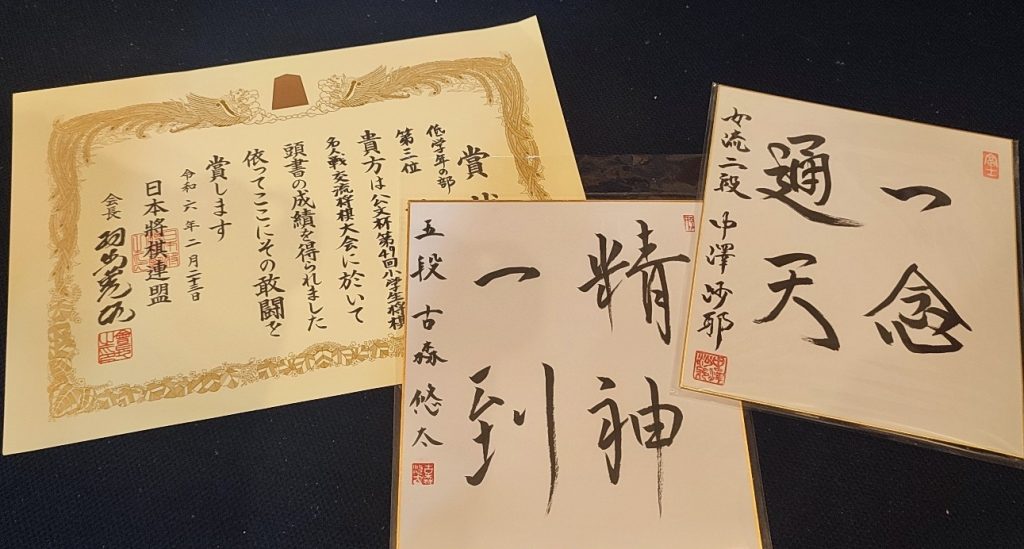 賞状
低学年の部
第三位
貴方は公文杯第49回小学生将棋
名人戦交流将棋大会に於いて
頭書の成績を得られました
依ってここにその敢闘を
賞します
令和六年二月二十三日
日本将棋連盟
会長 羽生善治
精神
一到
五段 古森悠太
一念
通天
女流二段 中澤沙耶